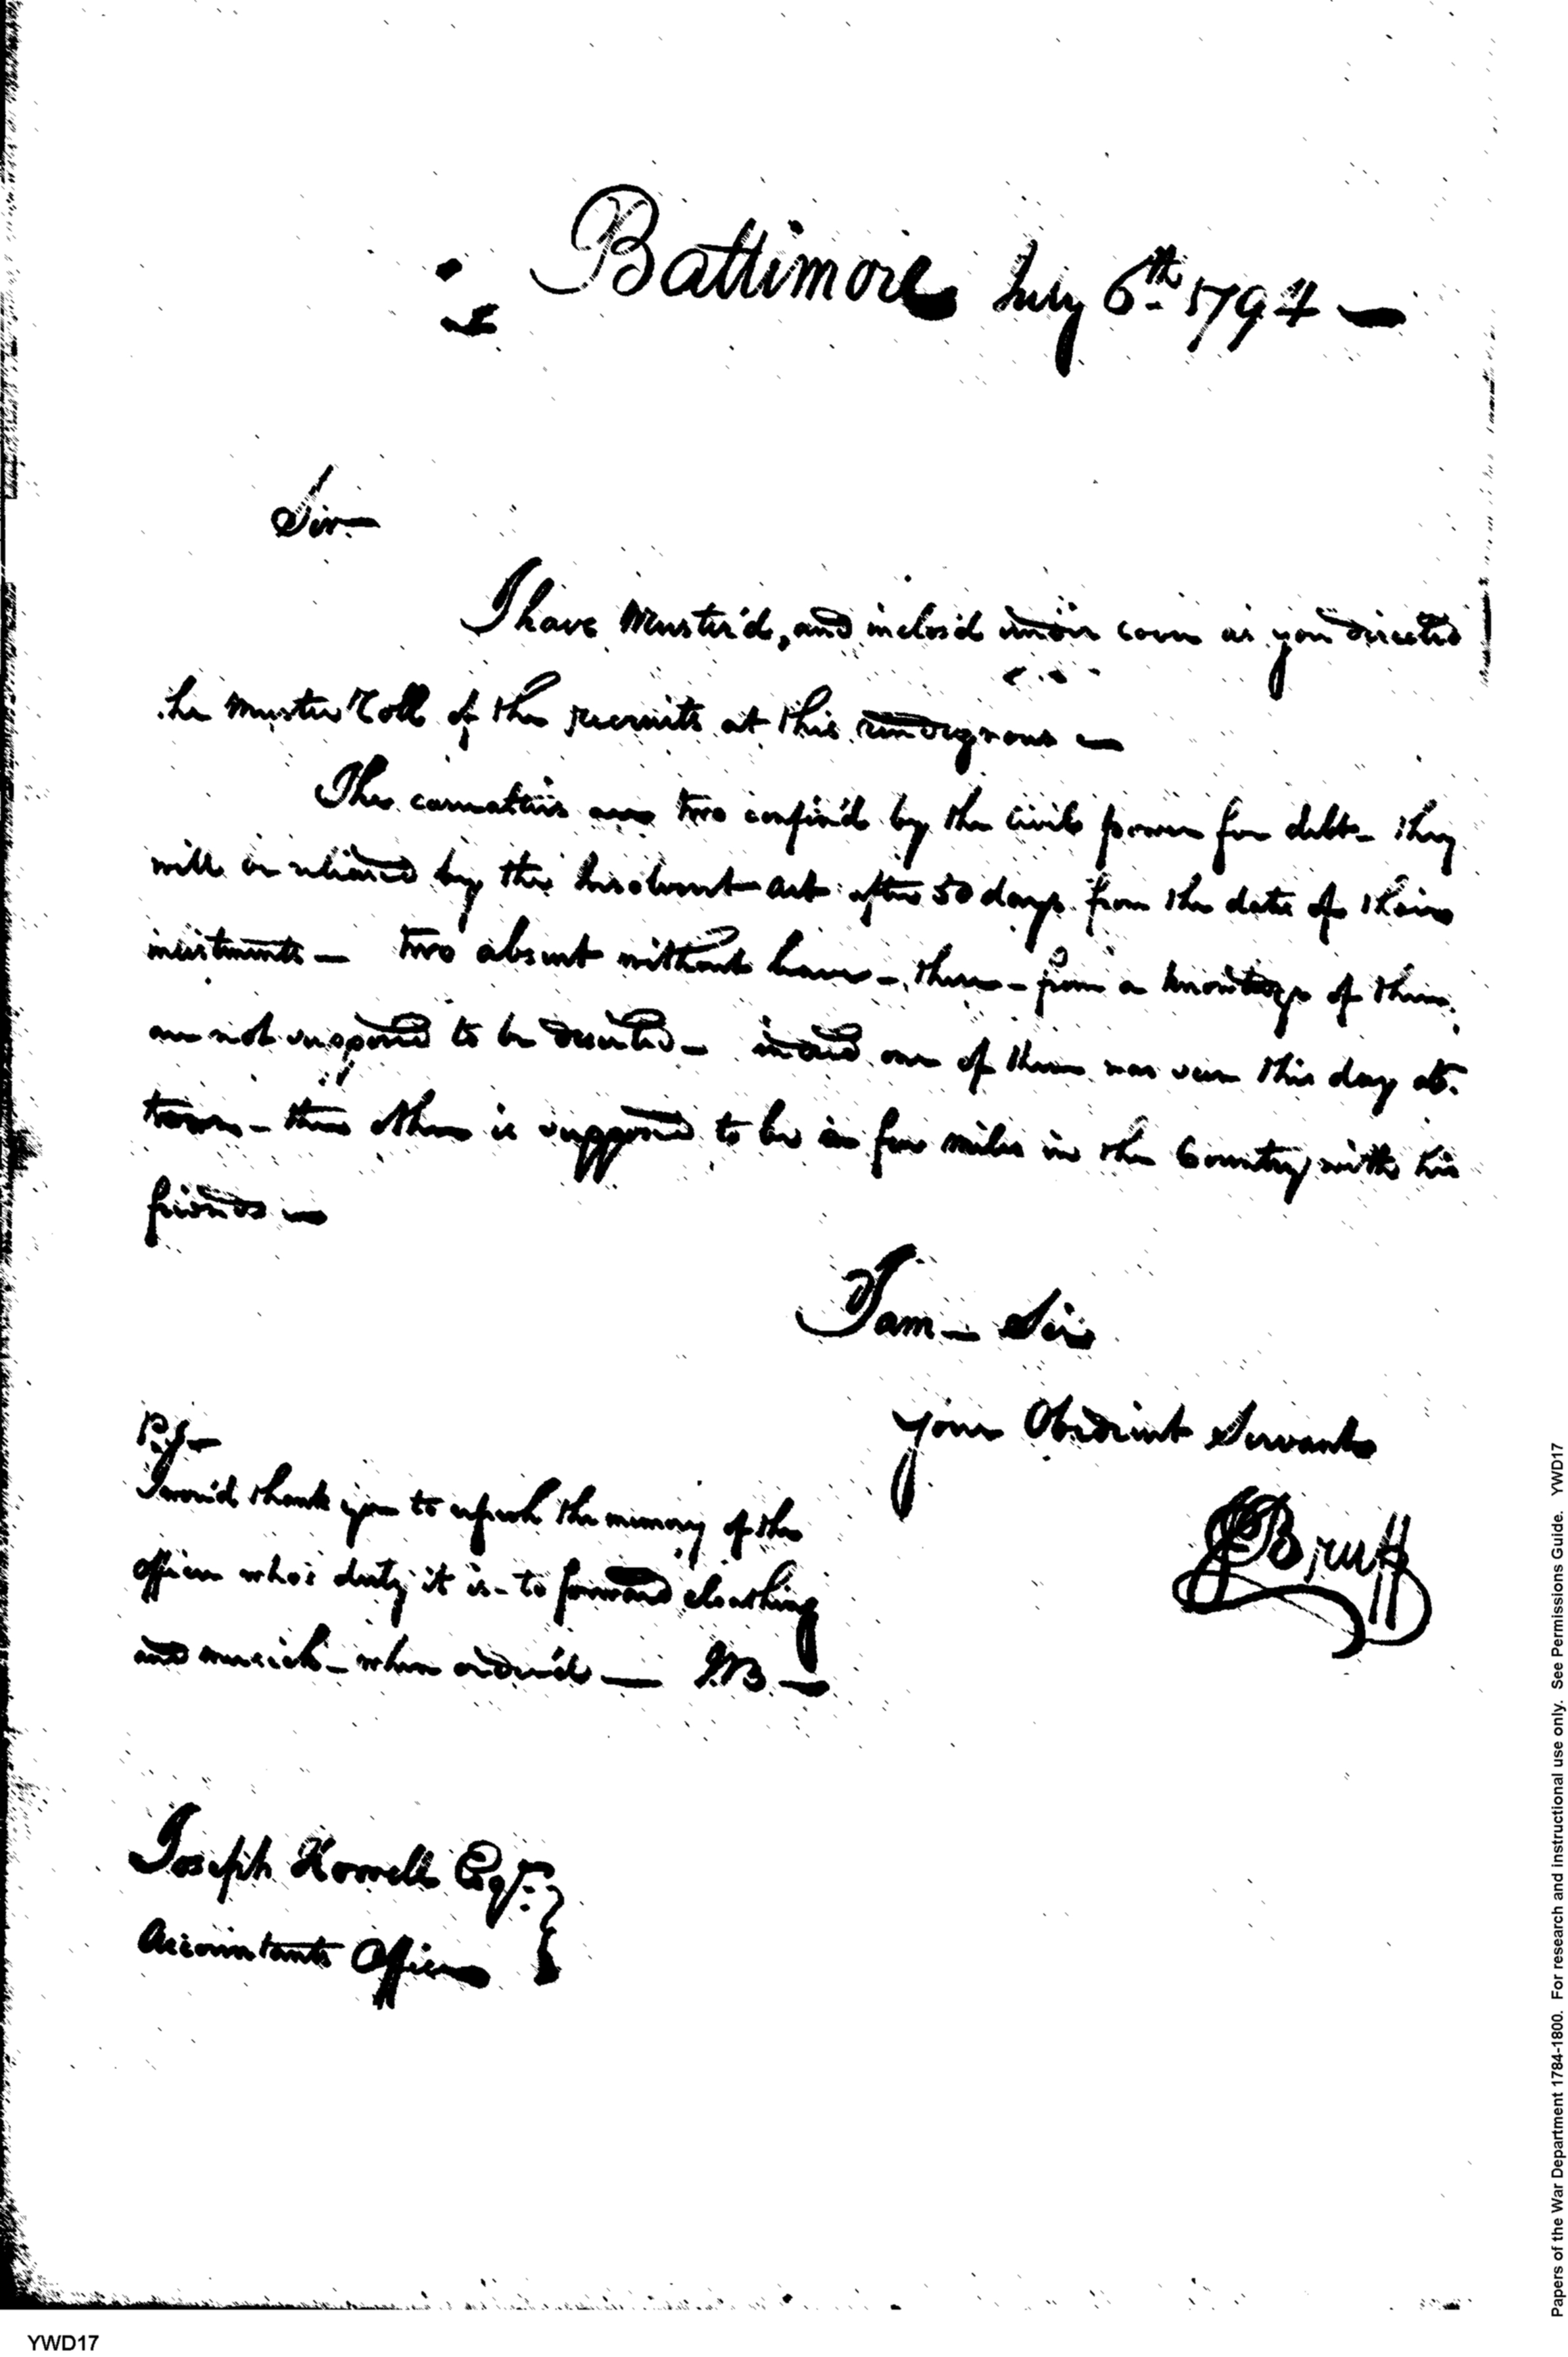 Baltimore July 6th. 1794 —
Sir —
I have Muster'd, and inclos'd under cover as you directed
the Muster Roll of the recruits at this rendezvous —
The casualties are two confin'd by the civil power for debt – they
will be releas'd by the Insolvent act after 50 days from the date of their
inlistments — two absent without leave – these – from a knowledge of them,
are not suppos'd to be deserted – indeed one of them was seen this day at
town – the other is suppos'd to be a few miles in the Country with his
friends —
I am – Sir
your Obedient Servant
P.S –
I wou'd thank you to refresh the memory of the
officer who's duty it is – to forward cloathing
and musick – when order'd — JB —
JBruff
Joseph Howell Esqr. }
Accountants Office }
YWD17
Papers of the War Department 1784-1800. For research and instructional use only. See Permissions Guide. YWD17